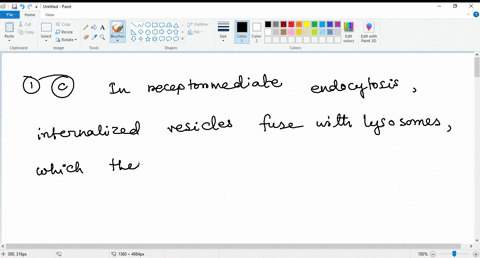 Untitled - Paint
File Home View
Cut
Copy
Paste
Crop
Resize
Rotate
Select
Brushes
Outline
Fill
Size
Color 1
Color 2
Edit colors
Edit with Paint 3D
Clipboard Image Tools Shapes Colors
1 C In receptormediate endocytosis,
internalized vesicles fuse with lysosomes,
which the
390, 316px 1380 × 4984px 100%